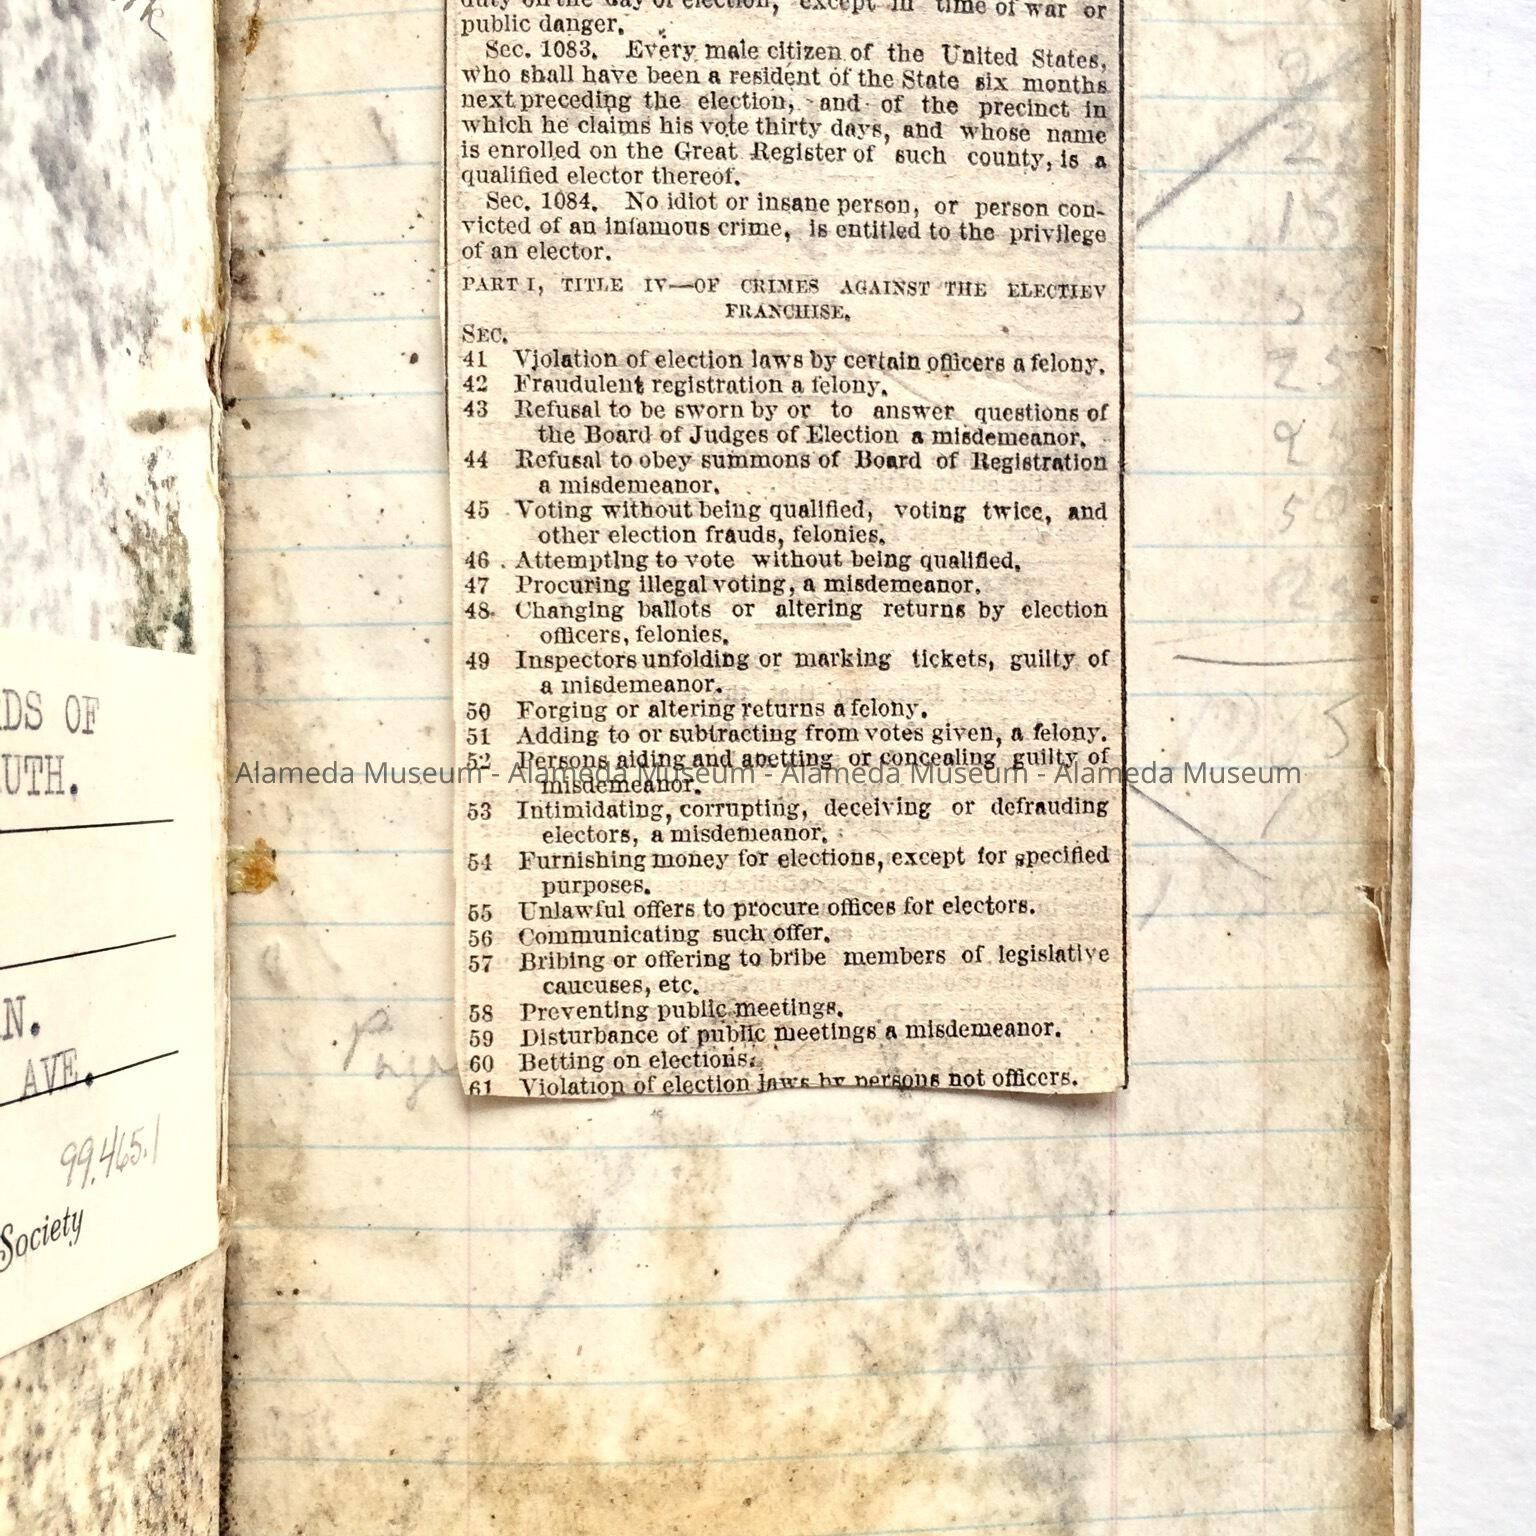 duty on the day of election, except in time of war or
public danger.
Sec. 1083. Every male citizen of the United States,
who shall have been a resident of the State six months
next preceding the election, and of the precinct in
which he claims his vote thirty days, and whose name
is enrolled on the Great Register of such county, is a
qualified elector thereof.
Sec. 1084. No idiot or insane person, or person con-
victed of an infamous crime, is entitled to the privilege
of an elector.
PART I, TITLE IV—OF CRIMES AGAINST THE ELECTIEV
FRANCHISE.
SEC.
41 Violation of election laws by certain officers a felony.
42 Fraudulent registration a felony.
43 Refusal to be sworn by or to answer questions of
the Board of Judges of Election a misdemeanor.
44 Refusal to obey summons of Board of Registration
a misdemeanor.
45 Voting without being qualified, voting twice, and
other election frauds, felonies.
46 Attempting to vote without being qualified.
47 Procuring illegal voting, a misdemeanor.
48 Changing ballots or altering returns by election
officers, felonies.
49 Inspectors unfolding or marking tickets, guilty of
a misdemeanor.
50 Forging or altering returns a felony.
51 Adding to or subtracting from votes given, a felony.
52 Persons aiding and abetting or concealing guilty of
misdemeanor.
53 Intimidating, corrupting, deceiving or defrauding
electors, a misdemeanor.
54 Furnishing money for elections, except for specified
purposes.
55 Unlawful offers to procure offices for electors.
56 Communicating such offer.
57 Bribing or offering to bribe members of legislative
caucuses, etc.
58 Preventing public meetings.
59 Disturbance of public meetings a misdemeanor.
60 Betting on elections.
61 Violation of election laws by persons not officers.
Alameda Museum - Alameda Museum - Alameda Museum - Alameda Museum
DS OF
UTH.
N.
AVE.
99.465.1
Society
15
25